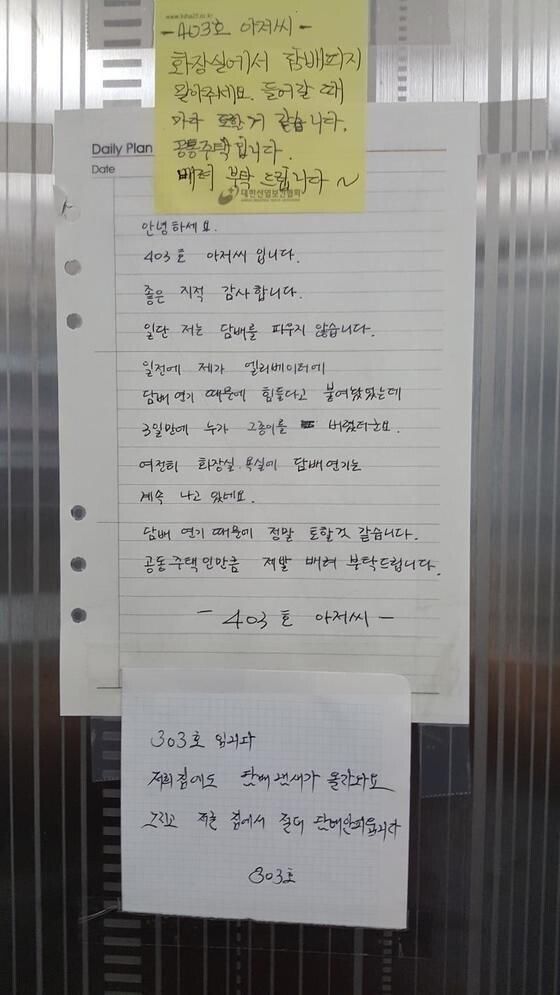 www.kiha21.or.kr
-403호 아저씨-
화장실에서 담배피지
말아주세요. 들어갈 때
마다 토할거 같습니다.
공동주택입니다.
배려 부탁드립니다~
대한산업보건협회
Daily Plan
Date
안녕하세요.
403호 아저씨입니다.
좋은 지적 감사합니다.
일단 저는 담배를 피우지 않습니다.
일전에 제가 엘리베이터에
담배연기 때문에 힘들다고 붙여놨었는데
3일만에 누가 그종이를 버렸더군요.
여전히 화장실.욕실에 담배연기는
계속 나고 있네요.
담배 연기 때문에 정말 토할것 같습니다.
공동주택인만큼 제발 배려 부탁드립니다.
- 403호 아저씨 -
303호 입니다
저희집에도 담배냄새가 올라와요
그리고 저흰 집에서 절대 담배안피웁니다
303호